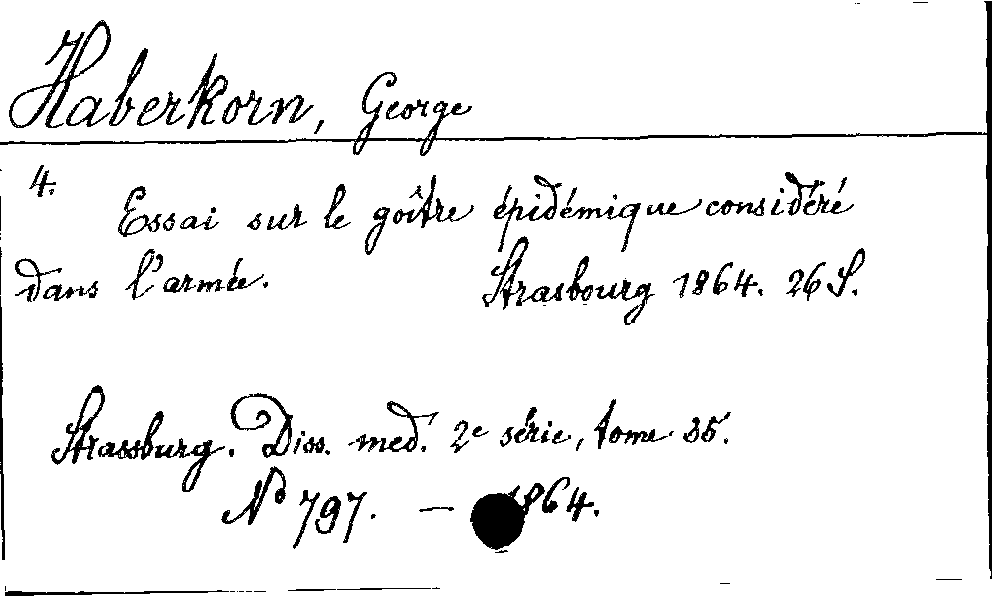 Haberkorn, George
4.
Essai sur le goître épidémique considéré
dans l'armée. Strasbourg 1864. 26 S.
Strassburg. Diss. med. 2e série, tome 35.
No 797. — 1864.